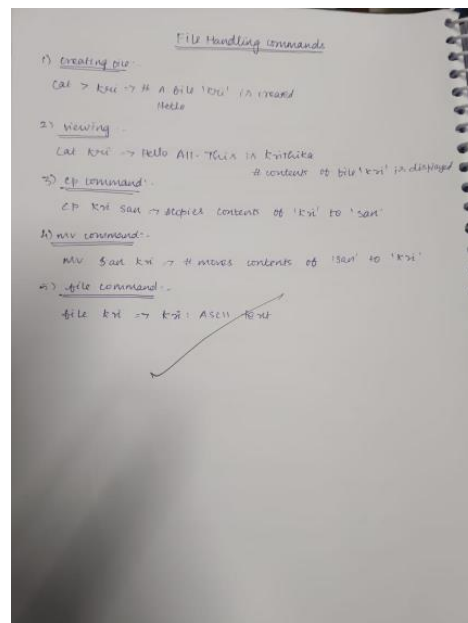 File Handling commands
1) creating file:-
Cat > kri -> # A file 'kri' is created
Hello
2) viewing :-
Cat kri -> Hello All. This is Krithika
# contents of file 'kri' is displayed
3) cp command:-
cp kri san -> copies contents of 'kri' to 'san'
4) mv command:-
mv san kri -> # moves contents of 'san' to 'kri'
5) file command:-
file kri -> kri: ASCII text